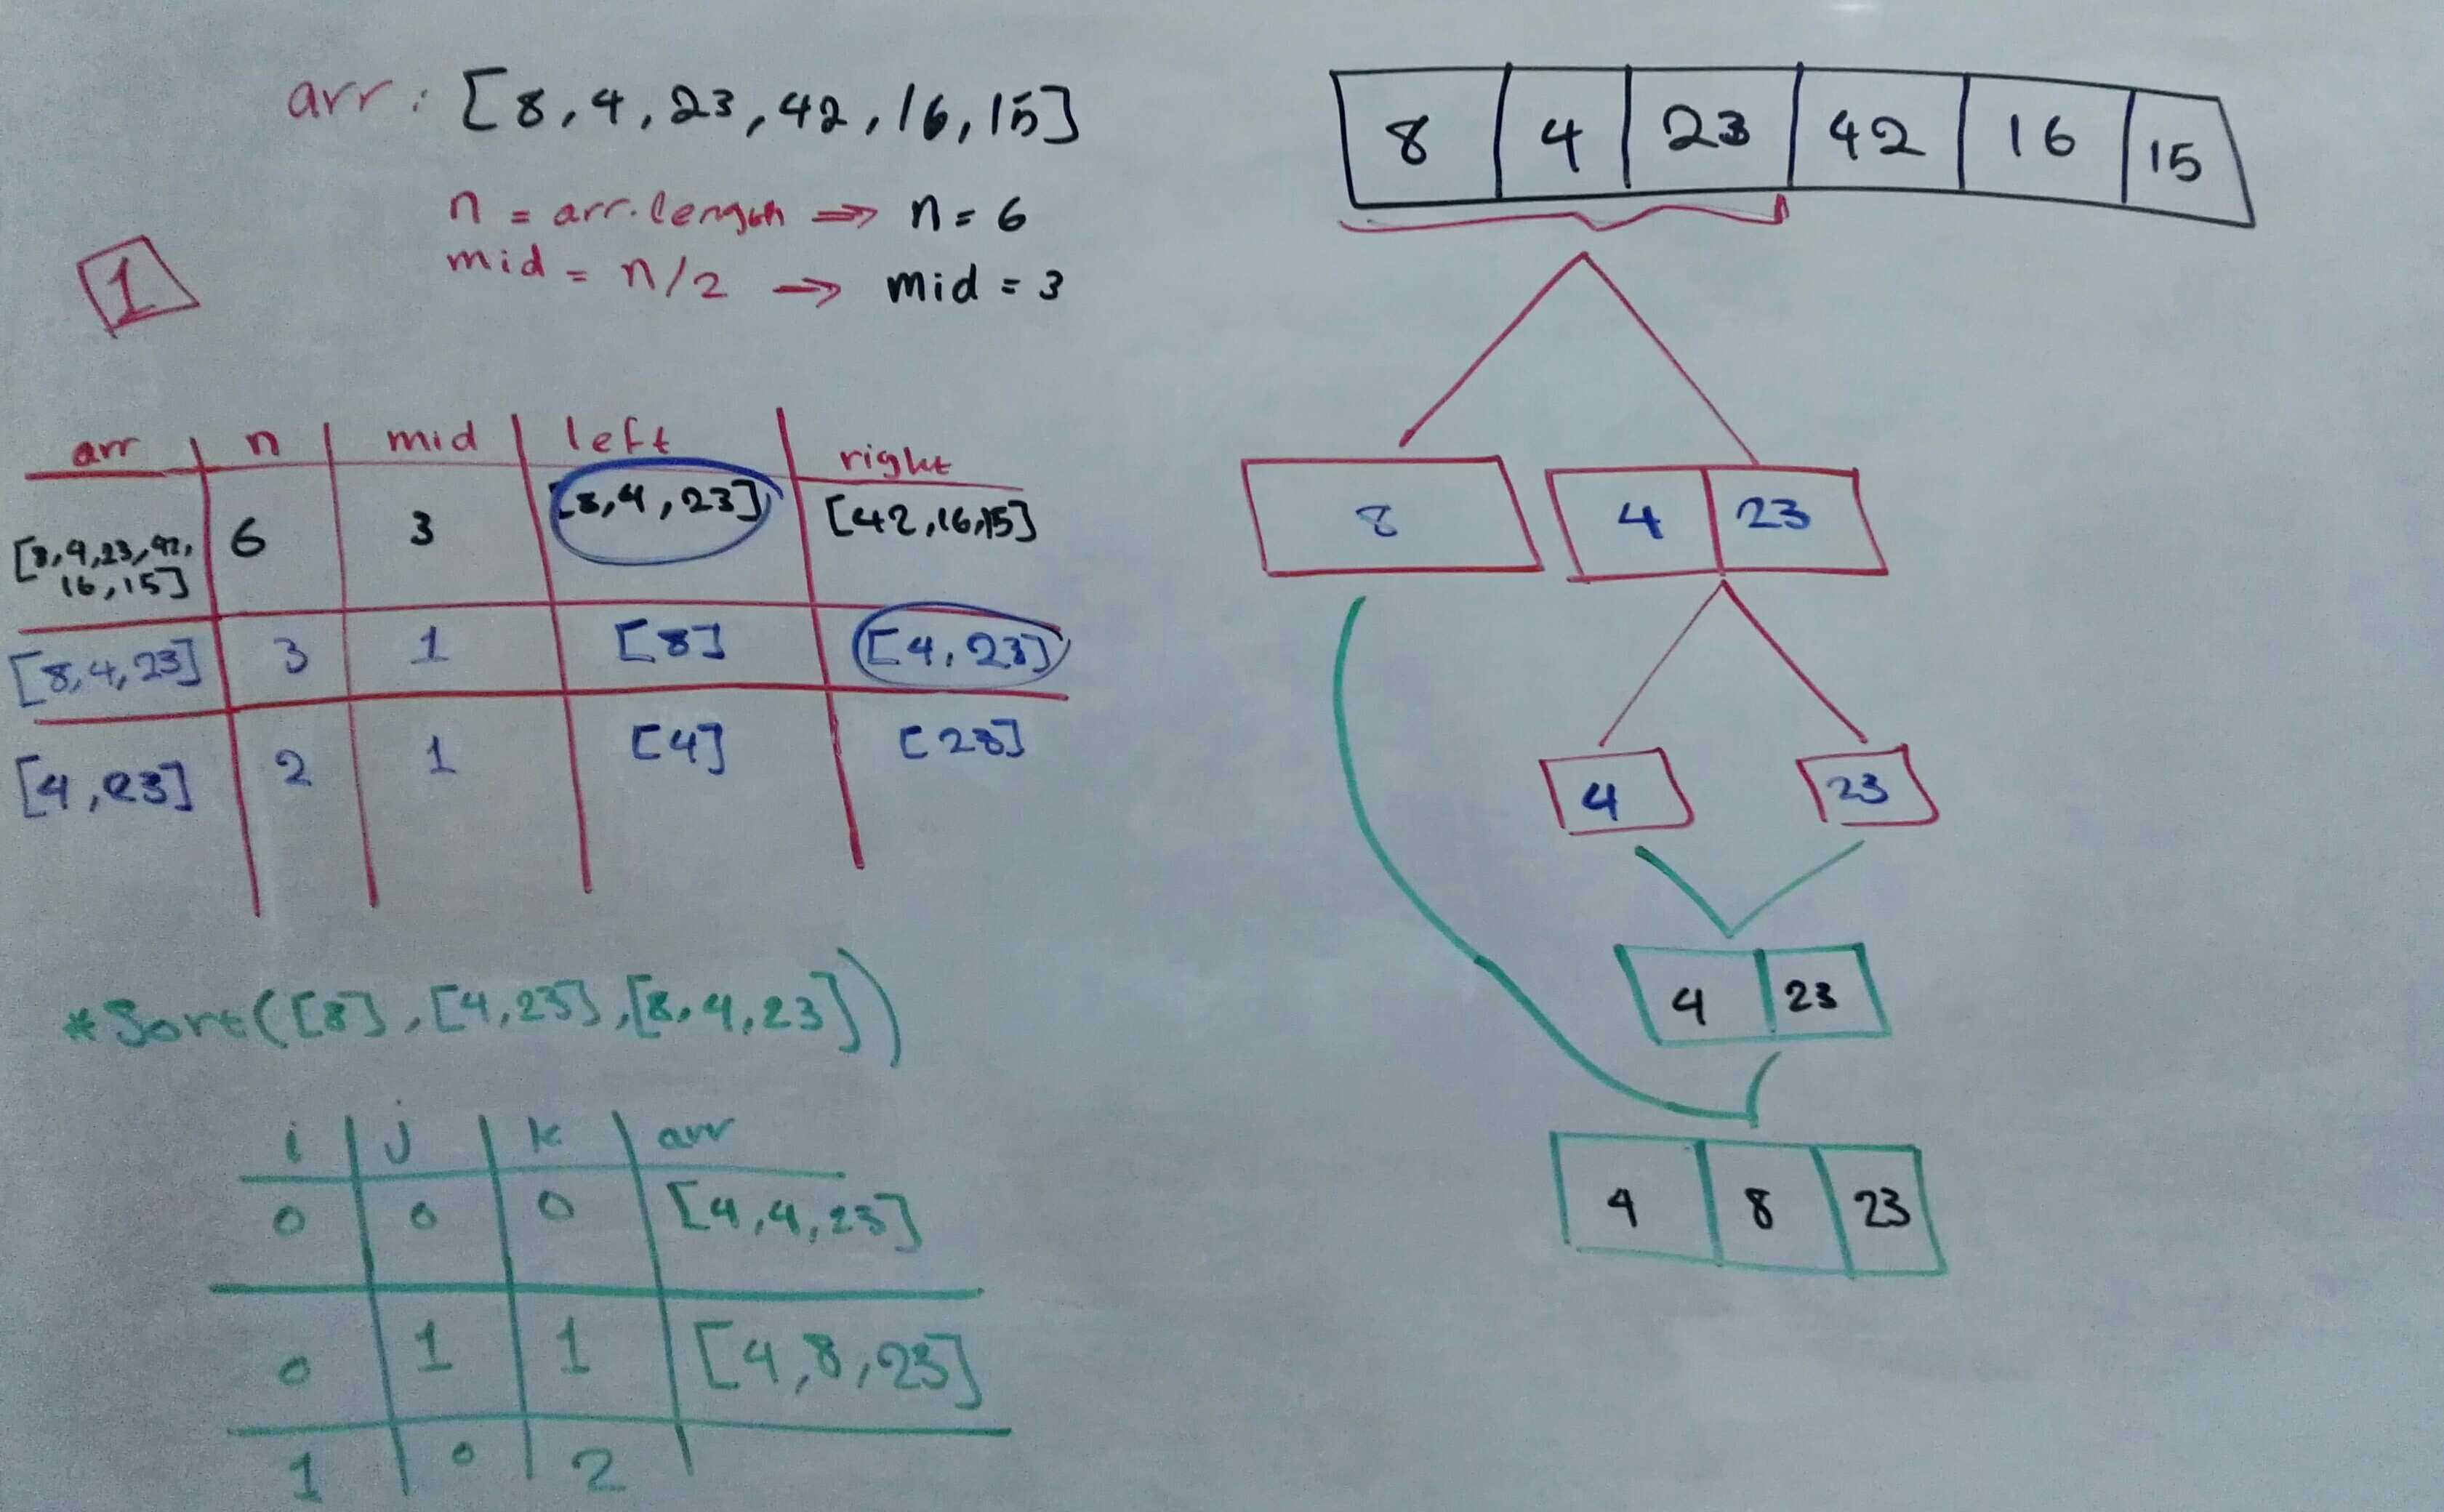 arr: [8,4,23,42,16,15]
n = arr.length => n = 6
mid = n/2 => mid = 3
1
arr n mid left right
[8,4,23,42, 6 3 [8,4,23] [42,16,15]
16,15]
[8,4,23] 3 1 [8] [4,23]
[4,23] 2 1 [4] [23]
*Sort([8],[4,23],[8,4,23])
i j k arr
0 0 0 [4,4,23]
0 1 1 [4,8,23]
1 0 2
8 4 23 42 16 15
8 4 23
4 23
4 23
4 8 23